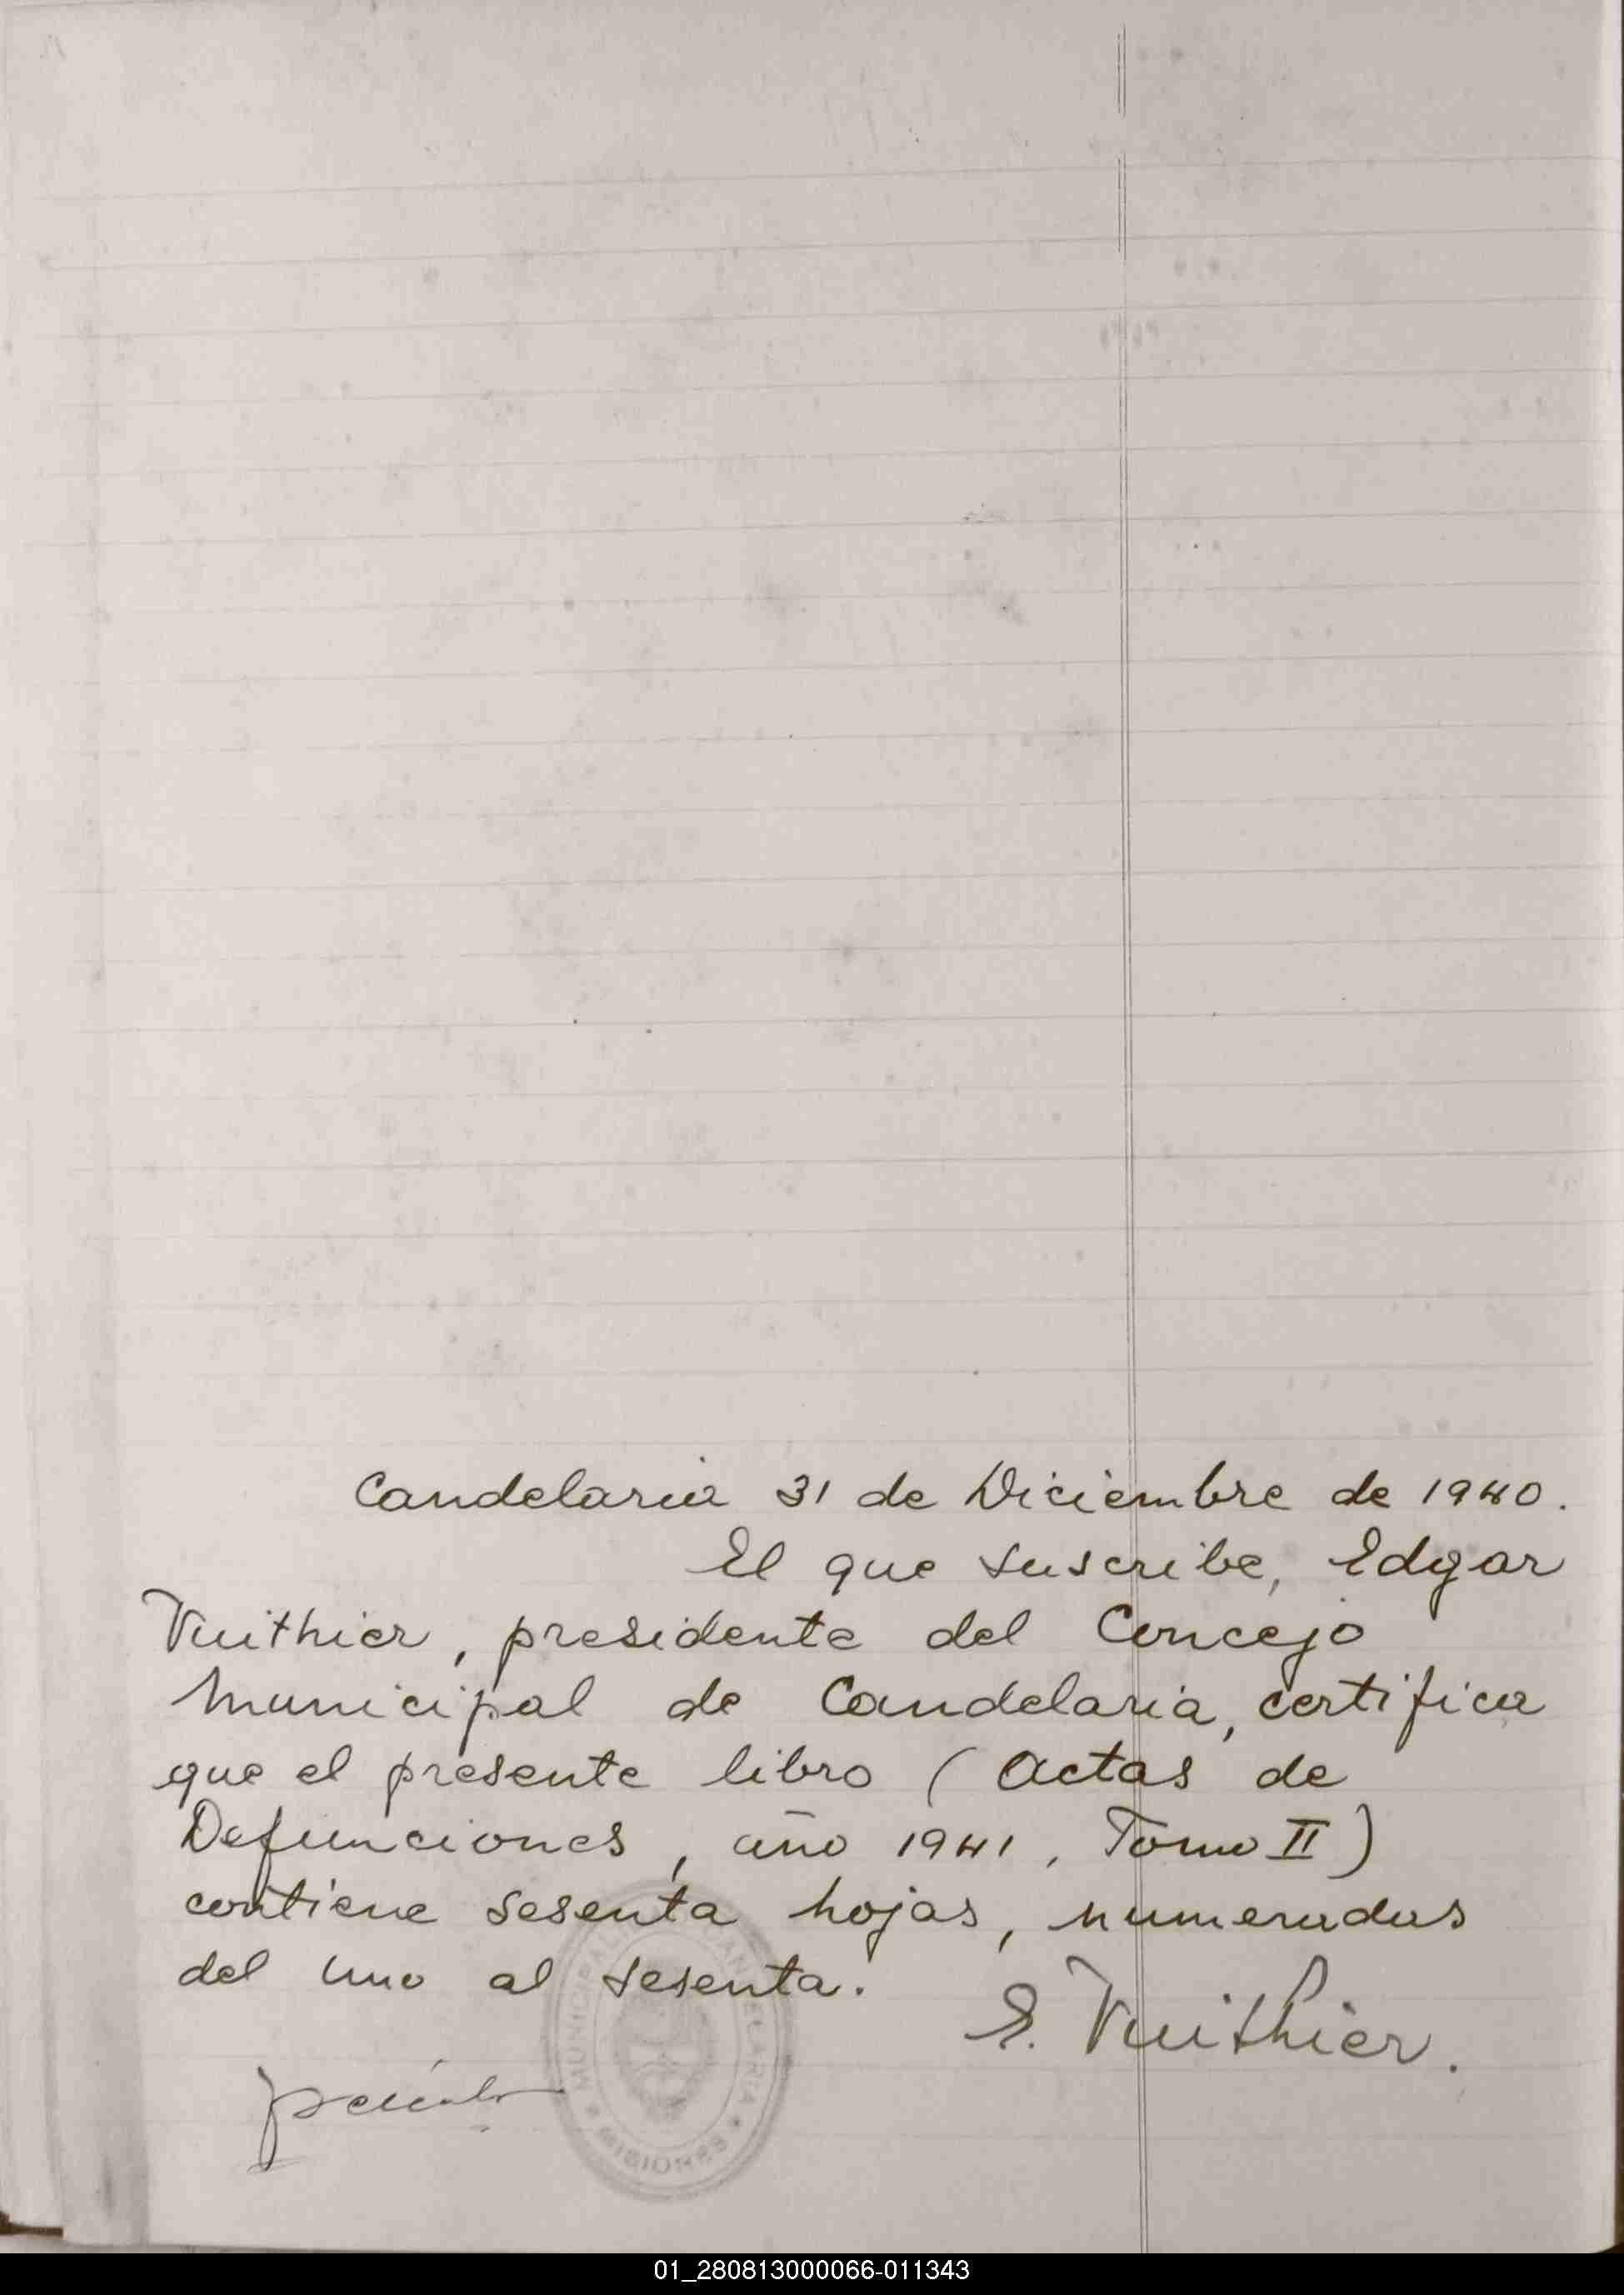 Candelaria 31 de Diciembre de 1940.
El que suscribe, Edgar
Vuithier, presidente del Concejo
Municipal de Candelaria, certifica
que el presente libro (Actas de
Defunciones, año 1941, Tomo II)
contiene sesenta hojas, numeradas
del uno al sesenta.
E. Vuithier.
MUNICIPALIDAD CANDELARIA
MISIONES
01_280813000066-011343